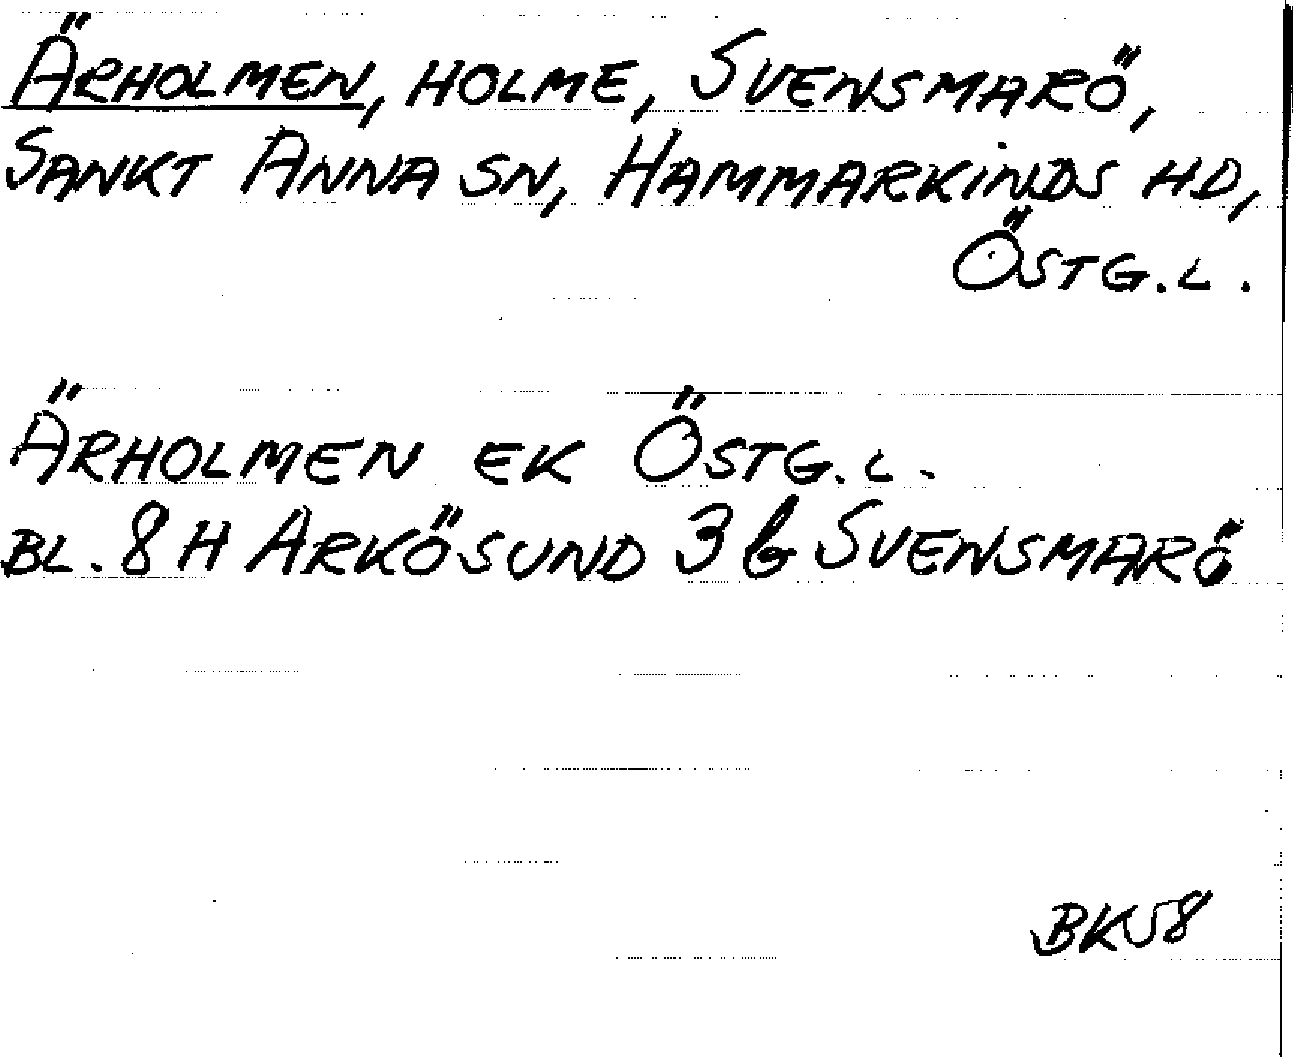 ÄRHOLMEN, HOLME, SVENSMARÖ,
SANKT ANNA SN, HAMMARKINDS HD,
ÖSTG.L.
ÄRHOLMEN EK ÖSTG.L.
BL. 8 H ARKÖSUND 3 b SVENSMARÖ
BK58